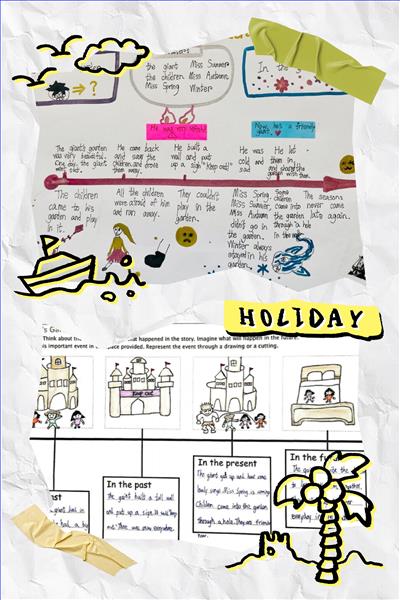 the giant Miss Summer
the children Miss Autumn
Miss Spring Winter
In the
→ ?
He was very selfish
Now, he's a friendly giant.
The giant's garden was very beautiful. One day, the giant went out.
He came back and saw the children and drove
He built a wall and put up a sign "Keep out!"
He was cold and sad
He let them in and shared the garden with them.
The children came to his garden and play in it.
All the children were afraid of him and run away.
They couldn't play in the garden.
Miss Spring, Miss Summer, Miss Autumn didn't go in the garden. Winter always stayed in his garden.
Some children came into the garden through a hole in the wall.
The seasons never come late again.
HOLIDAY
's Ga
Think about th
hat happened in the story. Imagine what will happen in the future.
is important event in
ace provided. Represent the event through a drawing or a cutting.
KEEP OUT
ast
In the past
The giant built a tall wall
and put up a sign. It said "Keep
out." There was snow everywhere.
In the present
The giant got up and heard some
lovely songs. Miss Spring is coming.
Children come into the garden
through a hole. They are friends
now.
In the fu
everyday in